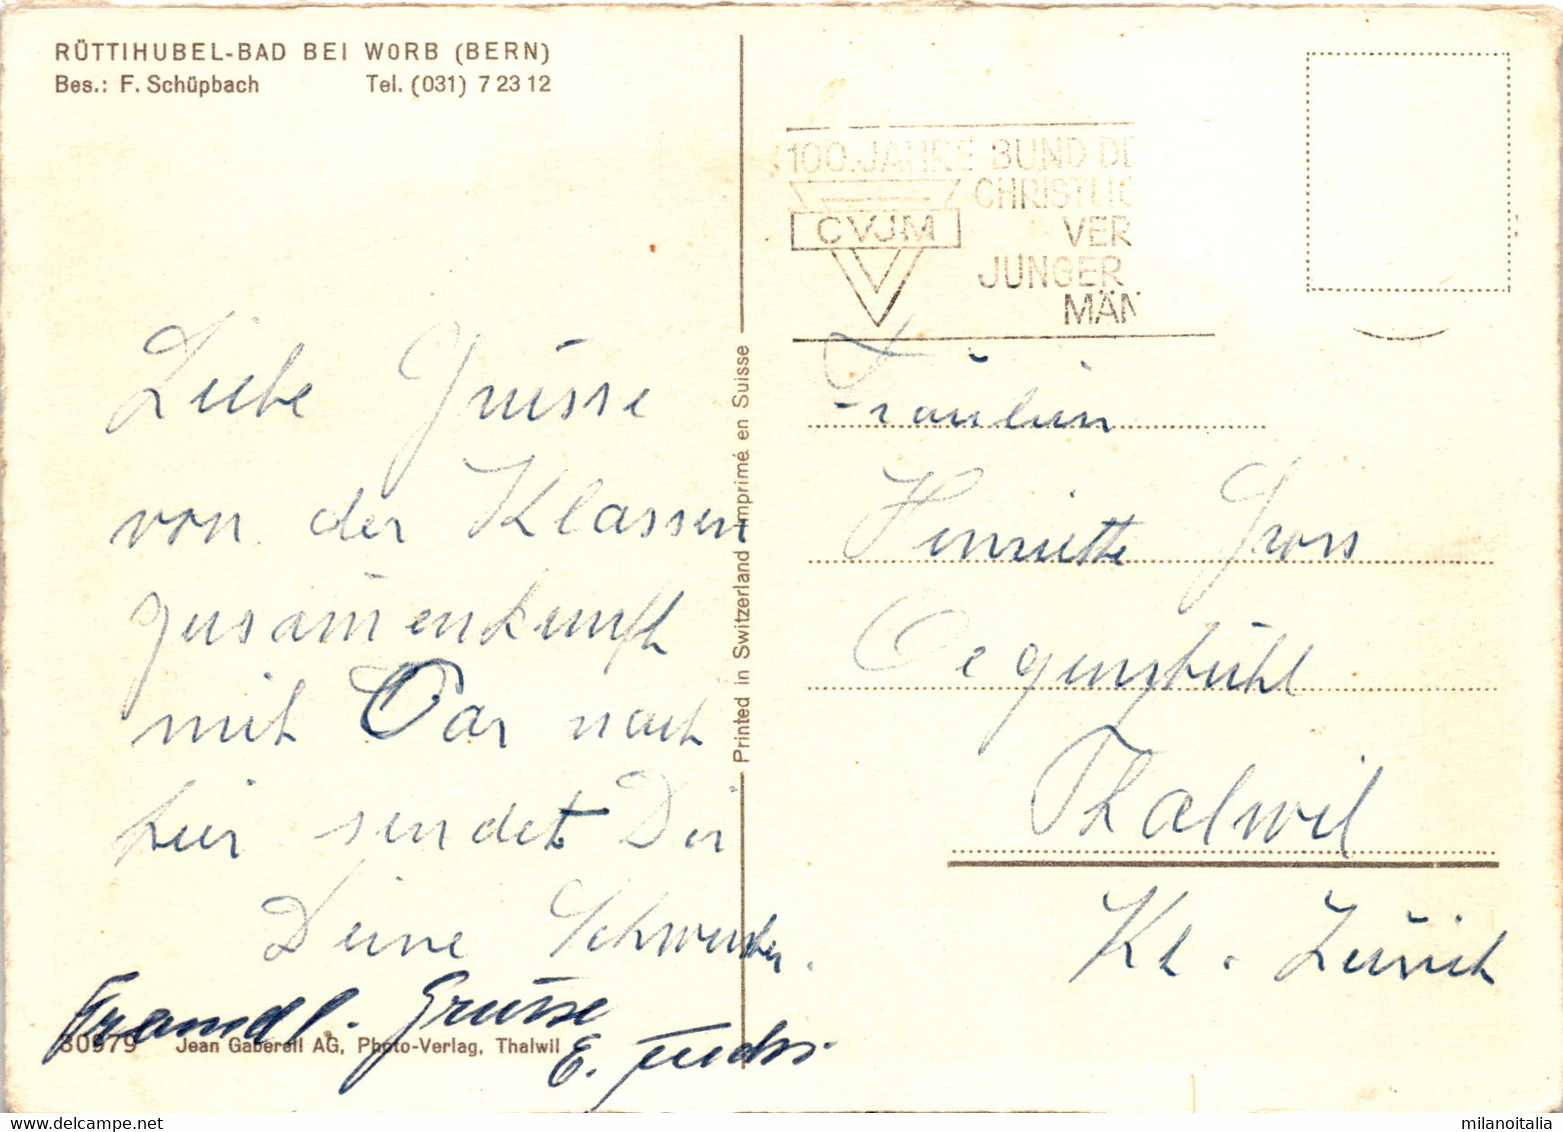 RÜTTIHUBEL-BAD BEI WORB (BERN)
Bes.: F. Schüpbach Tel. (031) 7 23 12
100 JAHRE BUND DE
CHRISTLIC
CVJM VER
JUNGER
MÄN
Liebe Grüsse
von der Klassen
zusam̄enkunft
mit Car nach
hier sendet Dir
Deine Schwester.
Freundl. Grüsse
E. Fuchs.
30979 Jean Gaberell AG, Photo-Verlag, Thalwil
Printed in Switzerland Imprimé en Suisse
Fräulein
Henriette Gross
Oegensbühl
Thalwil
Kt. Zürich
milanoitalia